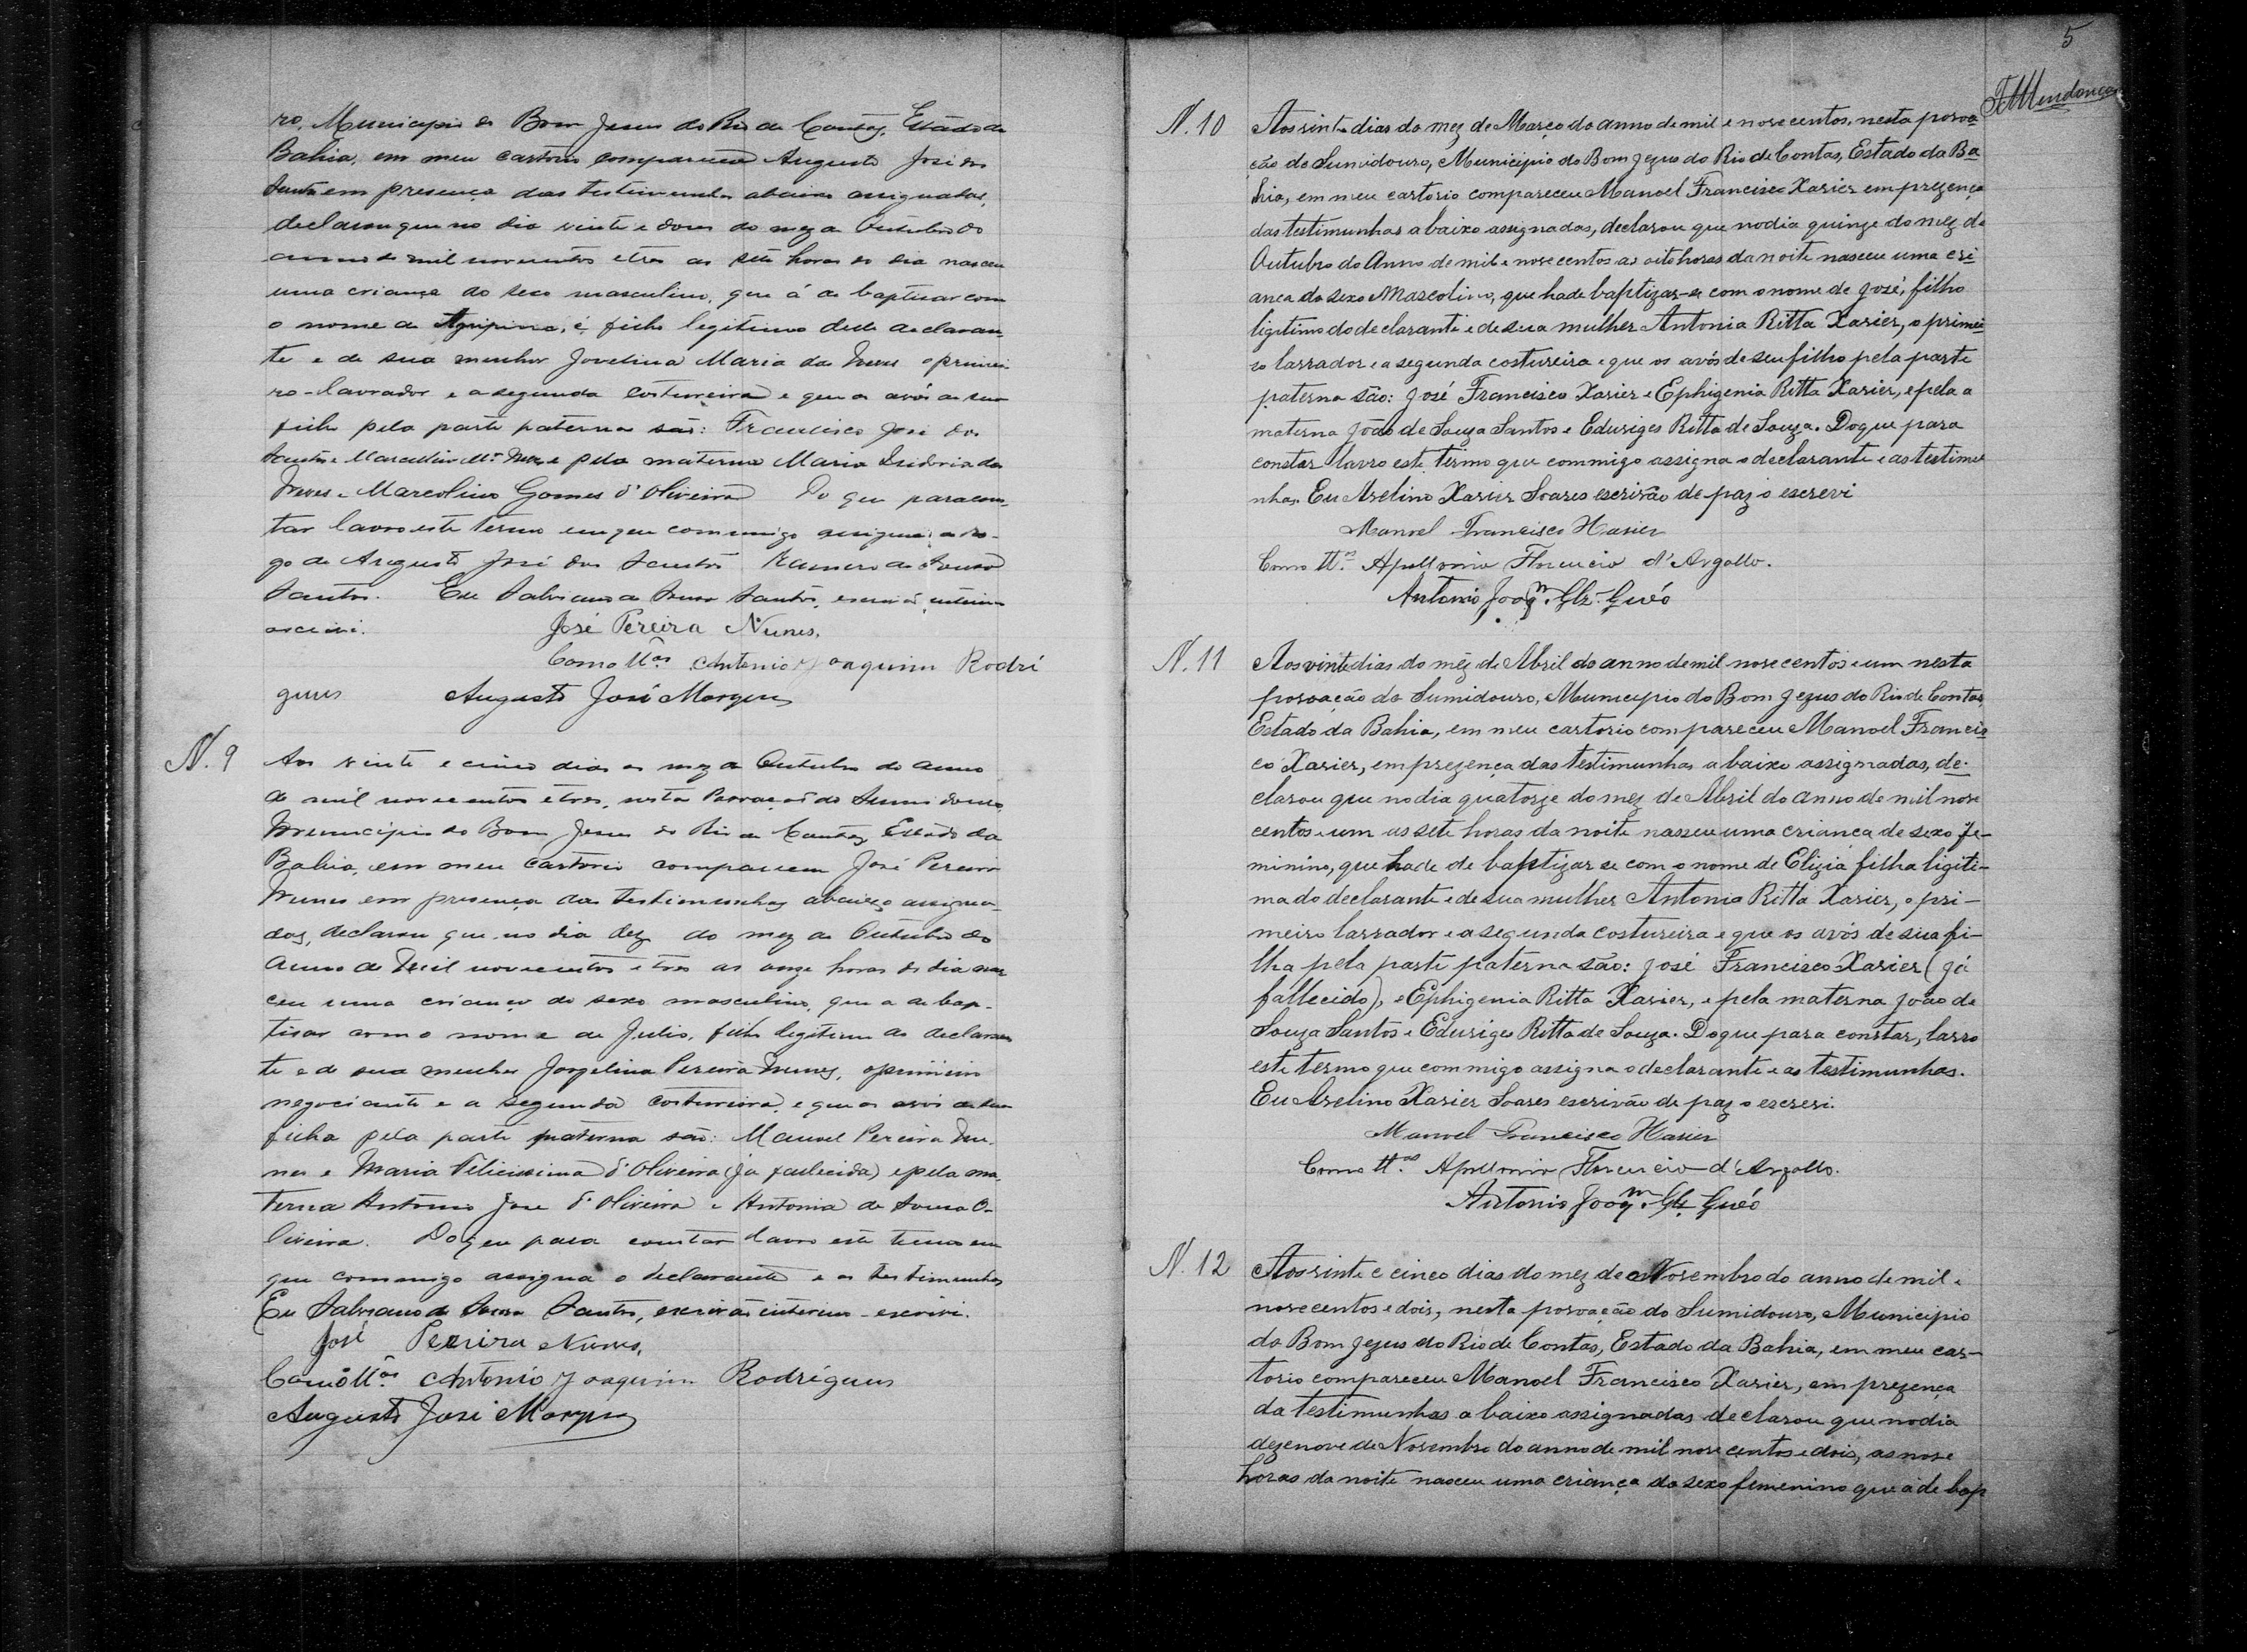 ro, Municipio do Bom Jesus do Rio de Contas, Estado da
Bahia, em meu cartorio compareceu Augusto José dos
Santos em presença das testimunhas abaixo assignadas,
declarou que no dia vinte e dous do mez de Outubro do
anno de mil novecentos e tres as sete horas do dia nasceu
uma criança do sexo masculino, que á de baptisar com
o nome de Agripino, é filho legitimo delle declaran-
te e de sua mulher Jovelina Maria das Neves o primei
ro-lavrador e a segunda costureira e que os avós de seu
filho pela parte paterna são: Francisco José dos
Santos e Marcellina Mª Neves e pela materna Maria Isidoria das
Neves e Marcolino Gomes d'Oliveira Do que para cons-
tar lavro este termo em que commigo assigna a ro-
go de Augusto José dos Santos Ramiro de Sousa
Santos. Eu Salviano de Sousa Santos, escrivão interino
escrivi. José Pereira Nunes.
Como ttas Antonio Joaquim Rodri
gues Augusto José Marques
N. 9 Aos vinte e cinco dias do mez de Outubro do anno
de mil novecentos e tres, nesta Povoação do Sumidouro,
Municipio do Bom Jesus do Rio de Contas Estado da
Bahia, em meu cartorio compareceu José Pereira
Nunes em presença das testimunhas abaixo assigna-
das, declarou que no dia dez do mez de Outubro do
anno de Mil novecentos e tres as onze horas do dia nas
ceu uma criança do sexo masculino, que a de bap-
tisar com o nome de Julio, filho legitimo do declaran
te e de sua mulher Jorgelina Pereira Nunes, o primeiro
negociante e a segunda costureira, e que os avós de seu
filho pela parte paterna são: Manoel Pereira Nu-
nes e Maria Felicissima d'Oliveira (ja fallecida) e pela ma-
terna Antonio José d'Oliveira e Antonia de Sousa O-
liveira. Do que para constar lavro este termo em
que commigo assigna o declarante e as testimunhas
Eu Salviano de Sousa Santos, escrivão interino escrivi.
José Pereira Nunes,
Como ttas Antonio Joaquim Rodrigues
Augusto José Marques
5
FMMendonça
N. 10 Aos vinte dias do mez de Março do anno de mil e novecentos, nesta povoa
ção do Sumidouro, Municipio do Bom Jezus do Rio de Contas, Estado da Ba
hia, em meu cartorio compareceu Manoel Francisco Xavier em prezença
das testimunhas abaixo assignadas, declarou que no dia quinze do mez de
Outubro do Anno de mil e novecentos as oito horas da noite nasceu uma cri
ança do sexo Mascolino, que hade baptizar-se com o nome de José, filho
ligitimo do declarante e de sua mulher Antonia Ritta Xavier, o primei
ro lavrador e a segunda costureira e que os avós de seu filho pela parte
paterna são: José Francisco Xavier e Ephigenia Ritta Xavier, e pela a
materna João de Souza Santos e Eduviges Ritta de Souza. Do que para
constar lavro este termo que commigo assigna o declarante e as testimu
nhas. Eu Avelino Xavier Soares escrivão de paz o escrevi
Manoel Francisco Xavier
Como ttas Apollonio Florencio d'Argollo.
Antonio Joaqm. Glz. Guéo
N. 11 Aos vinte dias do mêz de Abril do anno de mil novecentos e um nesta
povoação do Sumidouro, Municipio do Bom Jezus do Rio de Contas,
Estado da Bahia, em meu cartorio compareceu Manoel Francis
co Xavier, em prezença das testimunhas abaixo assignadas, de-
clarou que no dia quatorze do mez de Abril do anno de mil nove
centos e um as sete horas da noite nasceu uma criança de sexo fe-
minino, que hade de baptizar se com o nome de Elizia filha ligiti-
ma do declarante e de sua mulher Antonia Ritta Xavier, o pri-
meiro lavrador e a segunda costureira e que os avós de sua fi-
lha pela parte paterna são: José Francisco Xavier (já
fallecido), e Ephigenia Ritta Xavier, e pela materna João de
Souza Santos e Eduviges Ritta de Souza. Do que para constar, lavro
este termo que commigo assigna o declarante e as testimunhas.
Eu Avelino Xavier Soares escrivão de paz o escrevi.
Manoel Francisco Xavier
Como ttas Apollonio Florencio d'Argollo.
Antonio Joaqm. Glz Guéo
N. 12 Aos vinte e cinco dias do mez de Novembro do anno de mil e
novecentos e dois, nesta povoação do Sumidouro, Municipio
do Bom Jezus do Rio de Contas, Estado da Bahia, em meu car-
torio compareceu Manoel Francisco Xavier, em prezença
da testimunhas abaixo assignadas declarou que no dia
dezenove de Novembro do anno de mil novecentos e dois, as nove
horas da noite nasceu uma criança do sexo femenino que a de bap